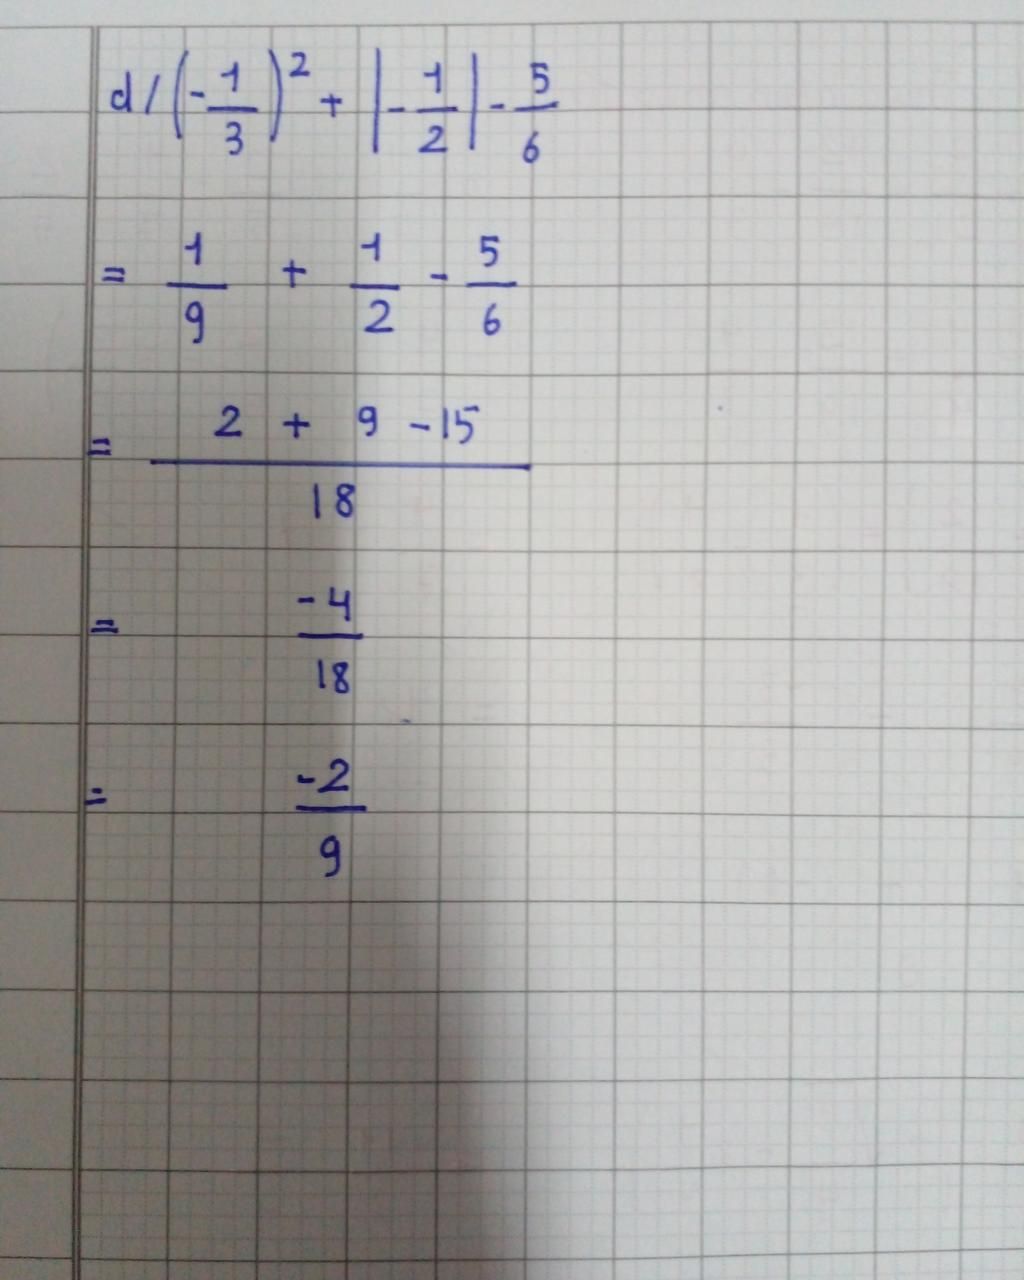 d/ (-1/3)² + |-1/2| - 5/6
= 1/9 + 1/2 - 5/6
= (2 + 9 - 15)/18
= -4/18
= -2/9